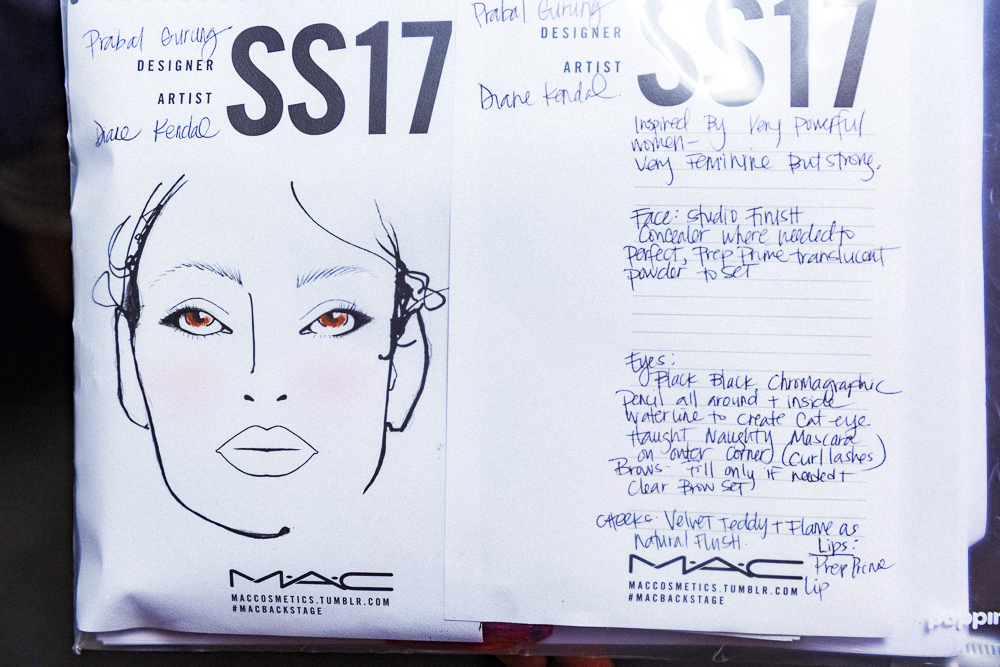 Prabal Gurung
DESIGNER
ARTIST
Diane Kendal
SS17
MAC
MACCOSMETICS.TUMBLR.COM
#MACBACKSTAGE
Prabal Gurung
DESIGNER
ARTIST
Diane Kendal
SS17
Inspired By Very powerful
women-
Very Feminine But strong.
Face: Studio Finish
Concealer where needed to
perfect, Prep Prime translucent
powder to set
Eyes:
Black Black Chromagraphic
Pencil all around + inside
Waterline to create Cat-eye.
Haught Naughty Mascara
on outer corner (Curl lashes)
Brows- Fill only if needed +
Clear Brow Set
Cheeks- Velvet Teddy + Flame as
natural Flush.
Lips:
Prep Prime
Lip
MAC
MACCOSMETICS.TUMBLR.COM
#MACBACKSTAGE